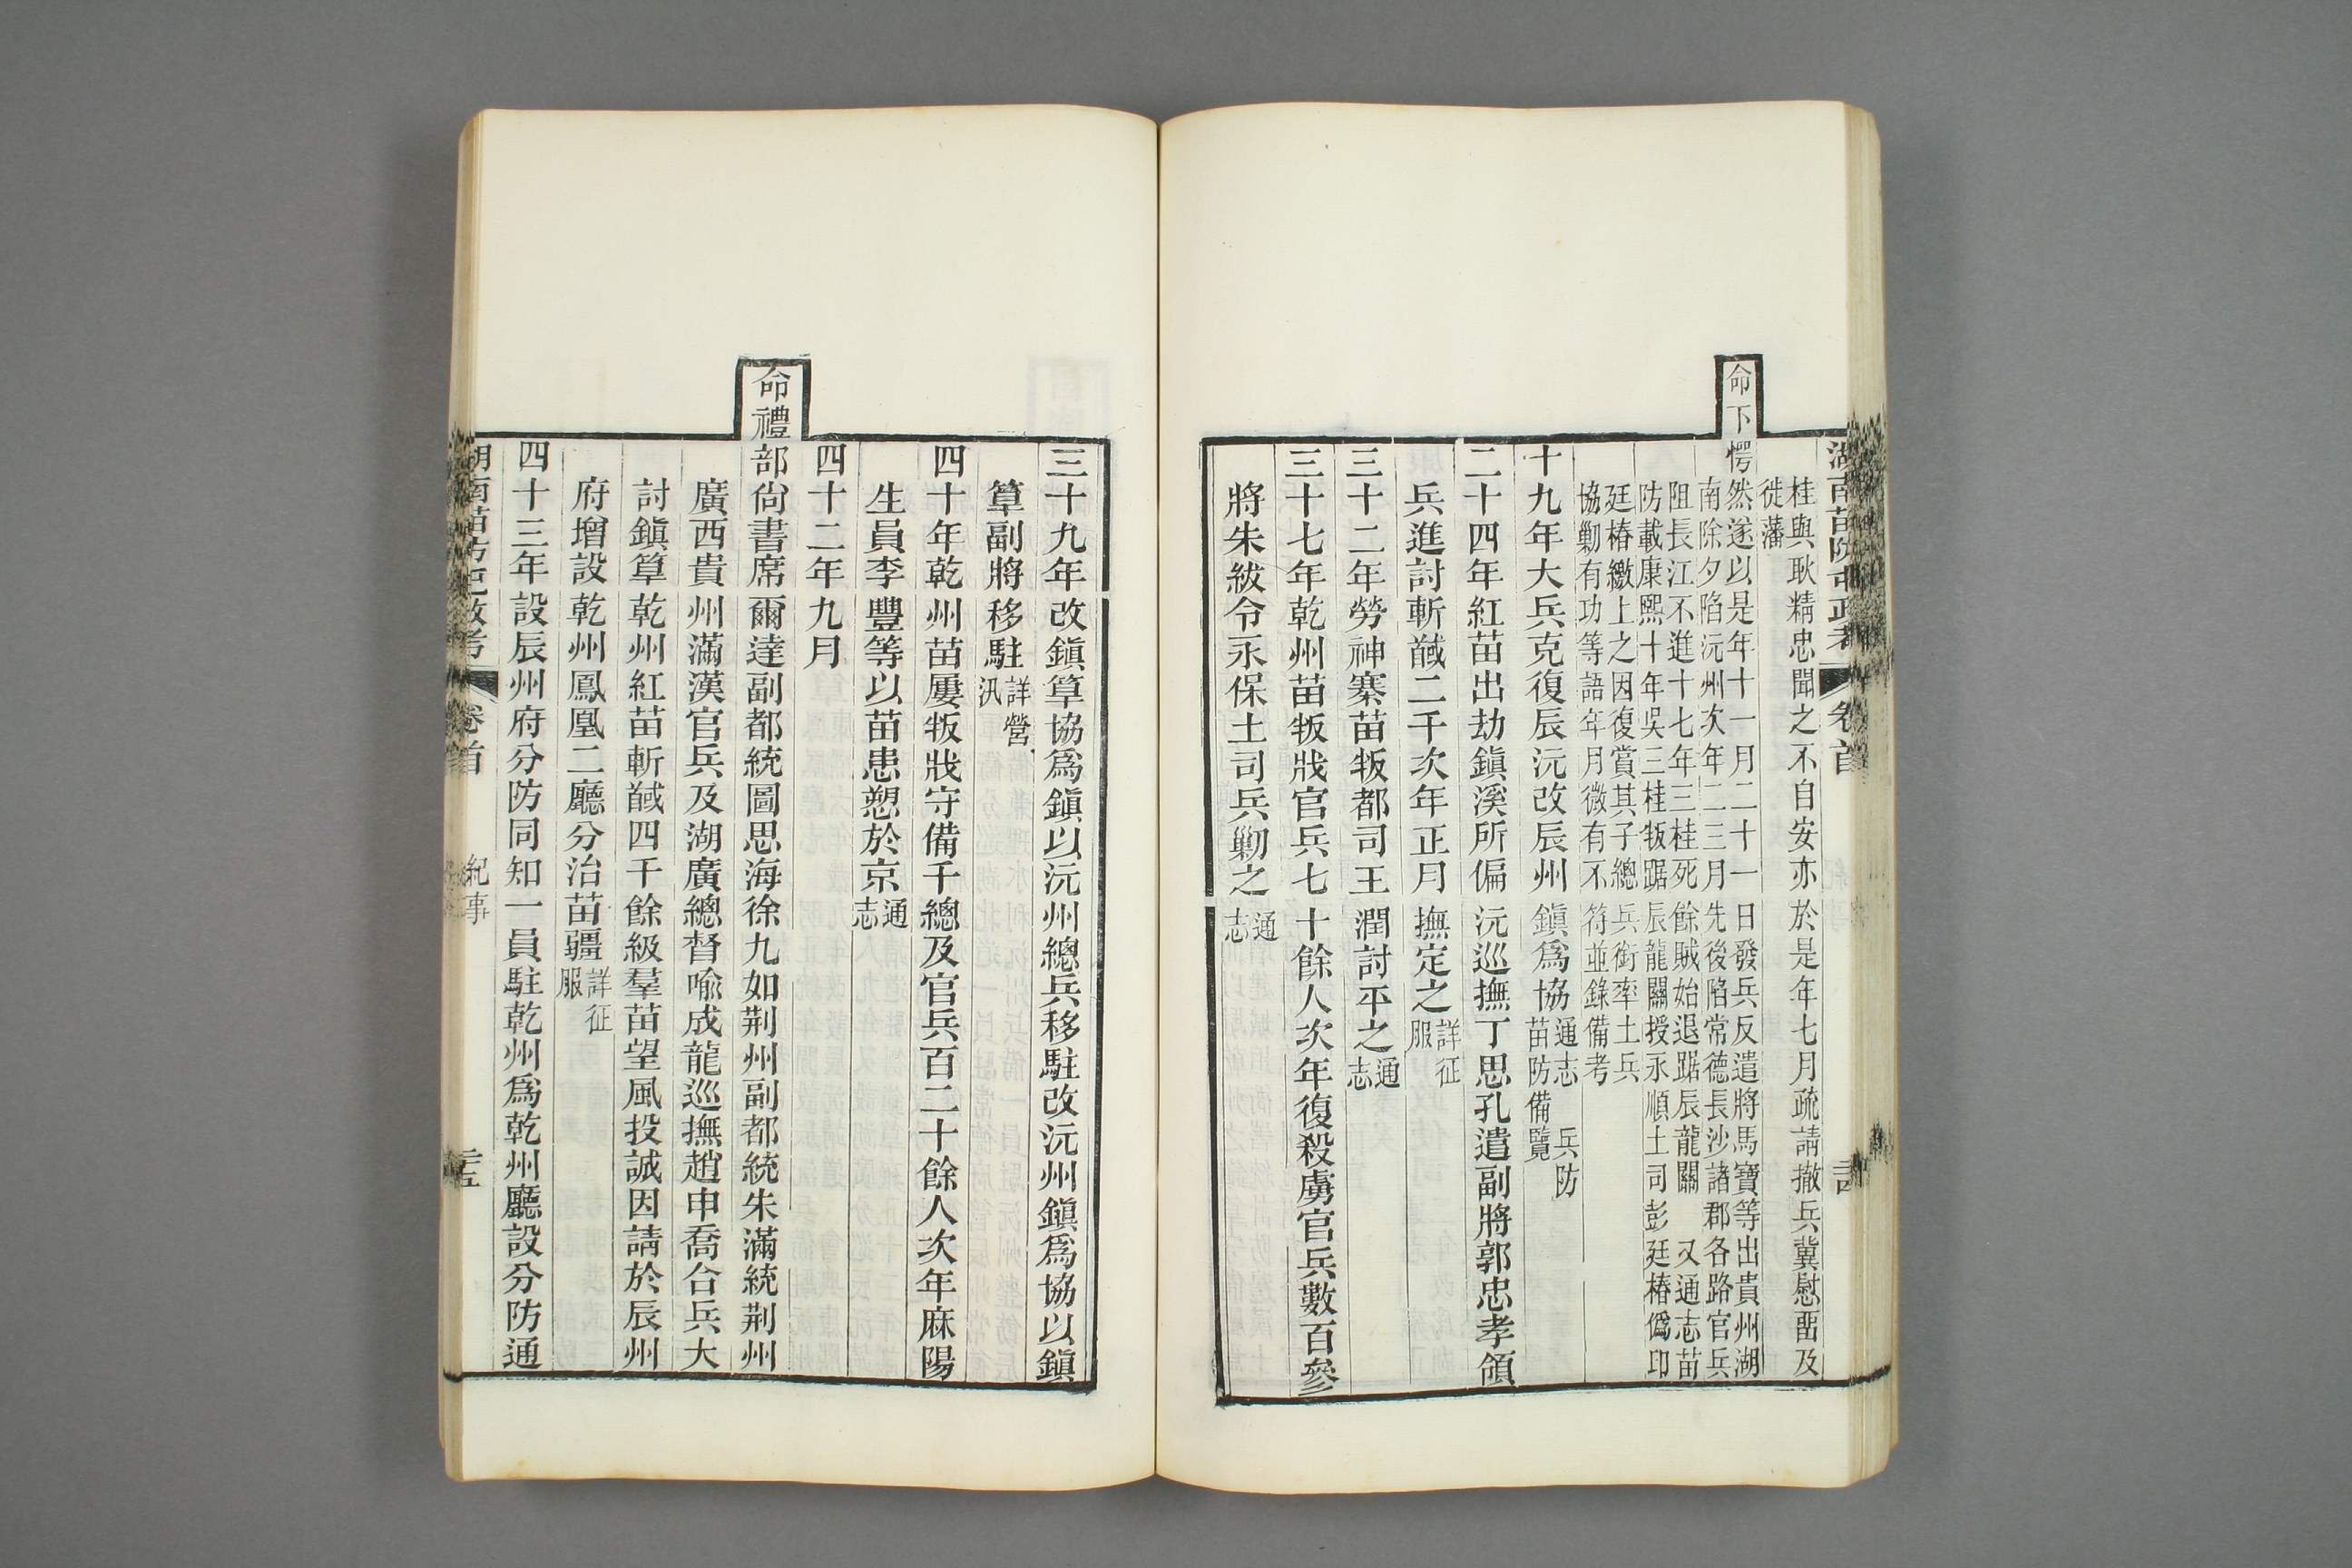 湖南苗防屯政考 卷首
桂與耿精忠聞之不自安亦於是年七月疏請撤兵冀慰畱及
徙藩
命下愕然遂以是年十一月二十一日發兵反遣將馬寶等出貴州湖
南除夕陷沅州次年二三月先後陷常德長沙諸郡各路官兵
阻長江不進十七年三桂死餘賊始退踞辰龍關 又通志苗
防載康熙十年吳三桂叛踞辰龍關授永順土司彭廷椿僞印
廷椿繳上之因復賞其子總兵銜率土兵
協勦有功等語年月微有不符並錄備考
十九年大兵克復辰沅改辰州鎭爲協通志 兵防
苗防備覽
二十四年紅苗出劫鎭溪所偏沅巡撫丁思孔遣副將郭忠孝領
兵進討斬馘二千次年正月撫定之詳征
服
三十二年勞神寨苗叛都司王潤討平之通
志
三十七年乾州苗叛戕官兵七十餘人次年復殺虜官兵數百參
將朱紱令永保土司兵勦之通
志
三十九年改鎭筸協爲鎭以沅州總兵移駐改沅州鎭爲協以鎭
筸副將移駐詳營
汛
四十年乾州苗屢叛戕守備千總及官兵百二十餘人次年麻陽
生員李豐等以苗患愬於京通
志
四十二年九月
命禮部尙書席爾達副都統圖思海徐九如荆州副都統朱滿統荆州
廣西貴州滿漢官兵及湖廣總督喻成龍巡撫趙申喬合兵大
討鎭筸乾州紅苗斬馘四千餘級羣苗望風投誠因請於辰州
府增設乾州鳳凰二廳分治苗疆詳征
服
四十三年設辰州府分防同知一員駐乾州爲乾州廳設分防通
湖南苗防屯政考 卷首 紀事 二十五